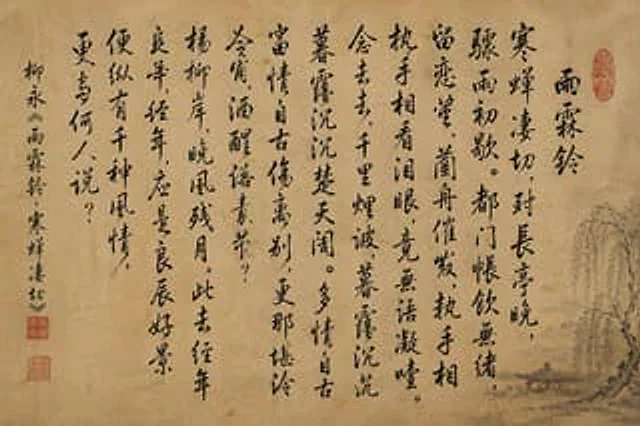 雨霖鈴
寒蟬凄切，对長亭晚，
驟雨初歇。都门帳飲無绪，
留恋、蘭舟催发、执手相
执手相看泪眼、竟無语凝噎。
念去去、千里煙波、暮靄沉沉
暮靄沉沉楚天阔。多情自古
當情自古傷离别，更那堪冷
冷宵，酒醒素节？
楊柳岸，晓风残月。此去经年
年，经年，应是良辰好景
便纵有千种风情，
更与何人说？
柳永《雨霖鈴·寒蟬凄切》